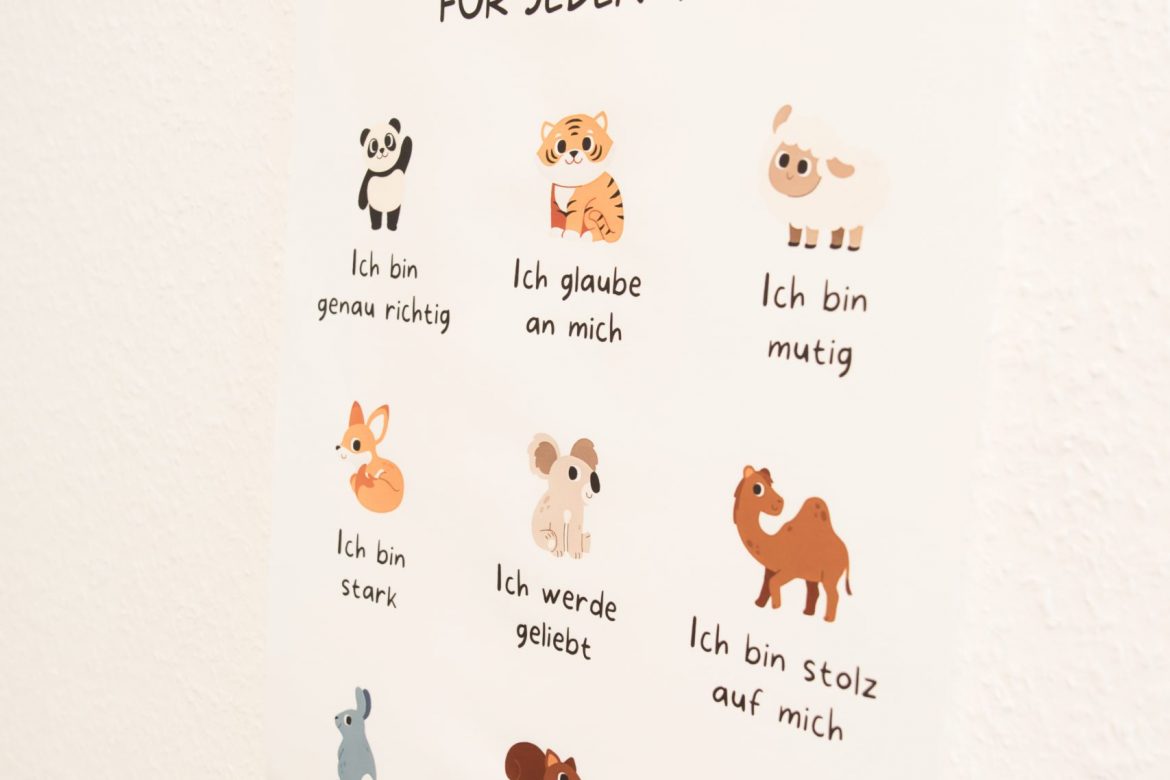 FÜR JEDEN
Ich bin
genau richtig
Ich glaube
an mich
Ich bin
mutig
Ich bin
stark
Ich werde
geliebt
Ich bin stolz
auf mich